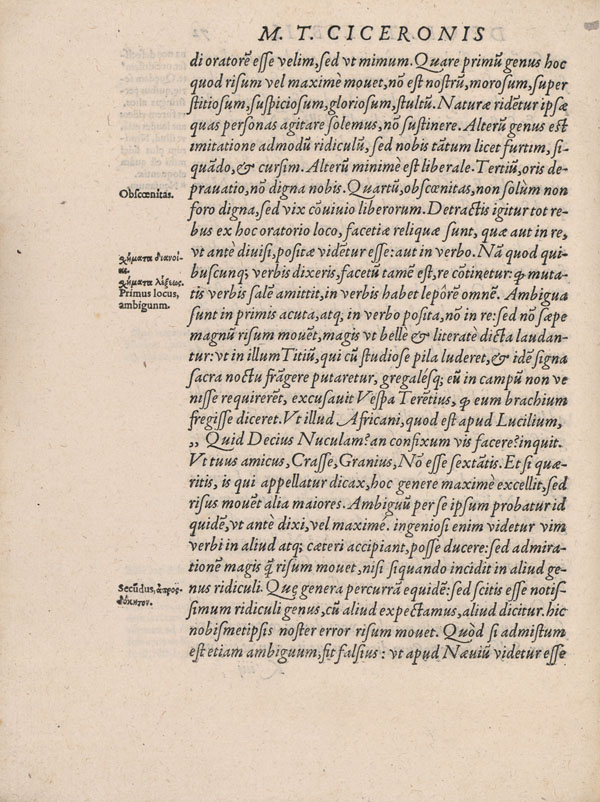 M. T. CICERONIS
di oratorē esse velim, sed vt mimum. Quare primū genus hoc
quod risum vel maximè mouet, nō est nostrū, morosum, super
stitiosum, suspiciosum, gloriosum, stultū. Naturæ ridētur ipsæ
quas personas agitare solemus, nō sustinere. Alterū genus est
imitatione admodū ridiculū, sed nobis tātum licet furtim, si-
quādo, & cursim. Alterū minimè est liberale. Tertiū, oris de-
prauatio, nō digna nobis. Quartū, obscœnitas, non solùm non
Obscœnitas.
foro digna, sed vix cōuiuio liberorum. Detractis igitur tot re-
bus ex hoc oratorio loco, facetiæ reliquæ sunt, quæ aut in re,
vt antè diuisi, positæ vidētur esse: aut in verbo. Nā quod qui-
buscunq; verbis dixeris, facetū tamē est, re cōtinetur: ꝙ muta-
tis verbis salē amittit, in verbis habet lepôrē omnē. Ambigua
Primus locus,
ambiguum.
sunt in primis acuta, atq; in verbo posita, nō in re: sed nō sæpe
magnū risum mouēt, magis vt bellè & literatè dicta laudan-
tur: vt in illum Titiū, qui cū studiose pila luderet, & idē signa
sacra noctu frāgere putaretur, gregalésq; eū in campū non ve
nisse requirerēt, excusauit Vespa Terētius, ꝙ eum brachium
fregisse diceret. Vt illud Africani, quod est apud Lucilium,
,, Quid Decius Nuculam? an confixum vis facere? inquit.
Vt tuus amicus, Crasse, Granius, Nō esse sextātis. Et si quæ-
ritis, is qui appellatur dicax, hoc genere maximè excellit, sed
risus mouēt alia maiores. Ambiguū per se ipsum probatur id
quidē, vt antè dixi, vel maximè. ingeniosi enim videtur vim
verbi in aliud atq; cæteri accipiant, posse ducere: sed admira-
tionē magis q̃ risum mouet, nisi siquando incidit in aliud ge-
nus ridiculi. Quę genera percurrā equidē: sed scitis esse notis-
Secūdus, ἀπροσ-
δόκητον.
simum ridiculi genus, cū aliud expectamus, aliud dicitur. hic
nobismetipsis noster error risum mouet. Quòd si admistum
est etiam ambiguum, fit falsius: vt apud Næuiū videtur esse